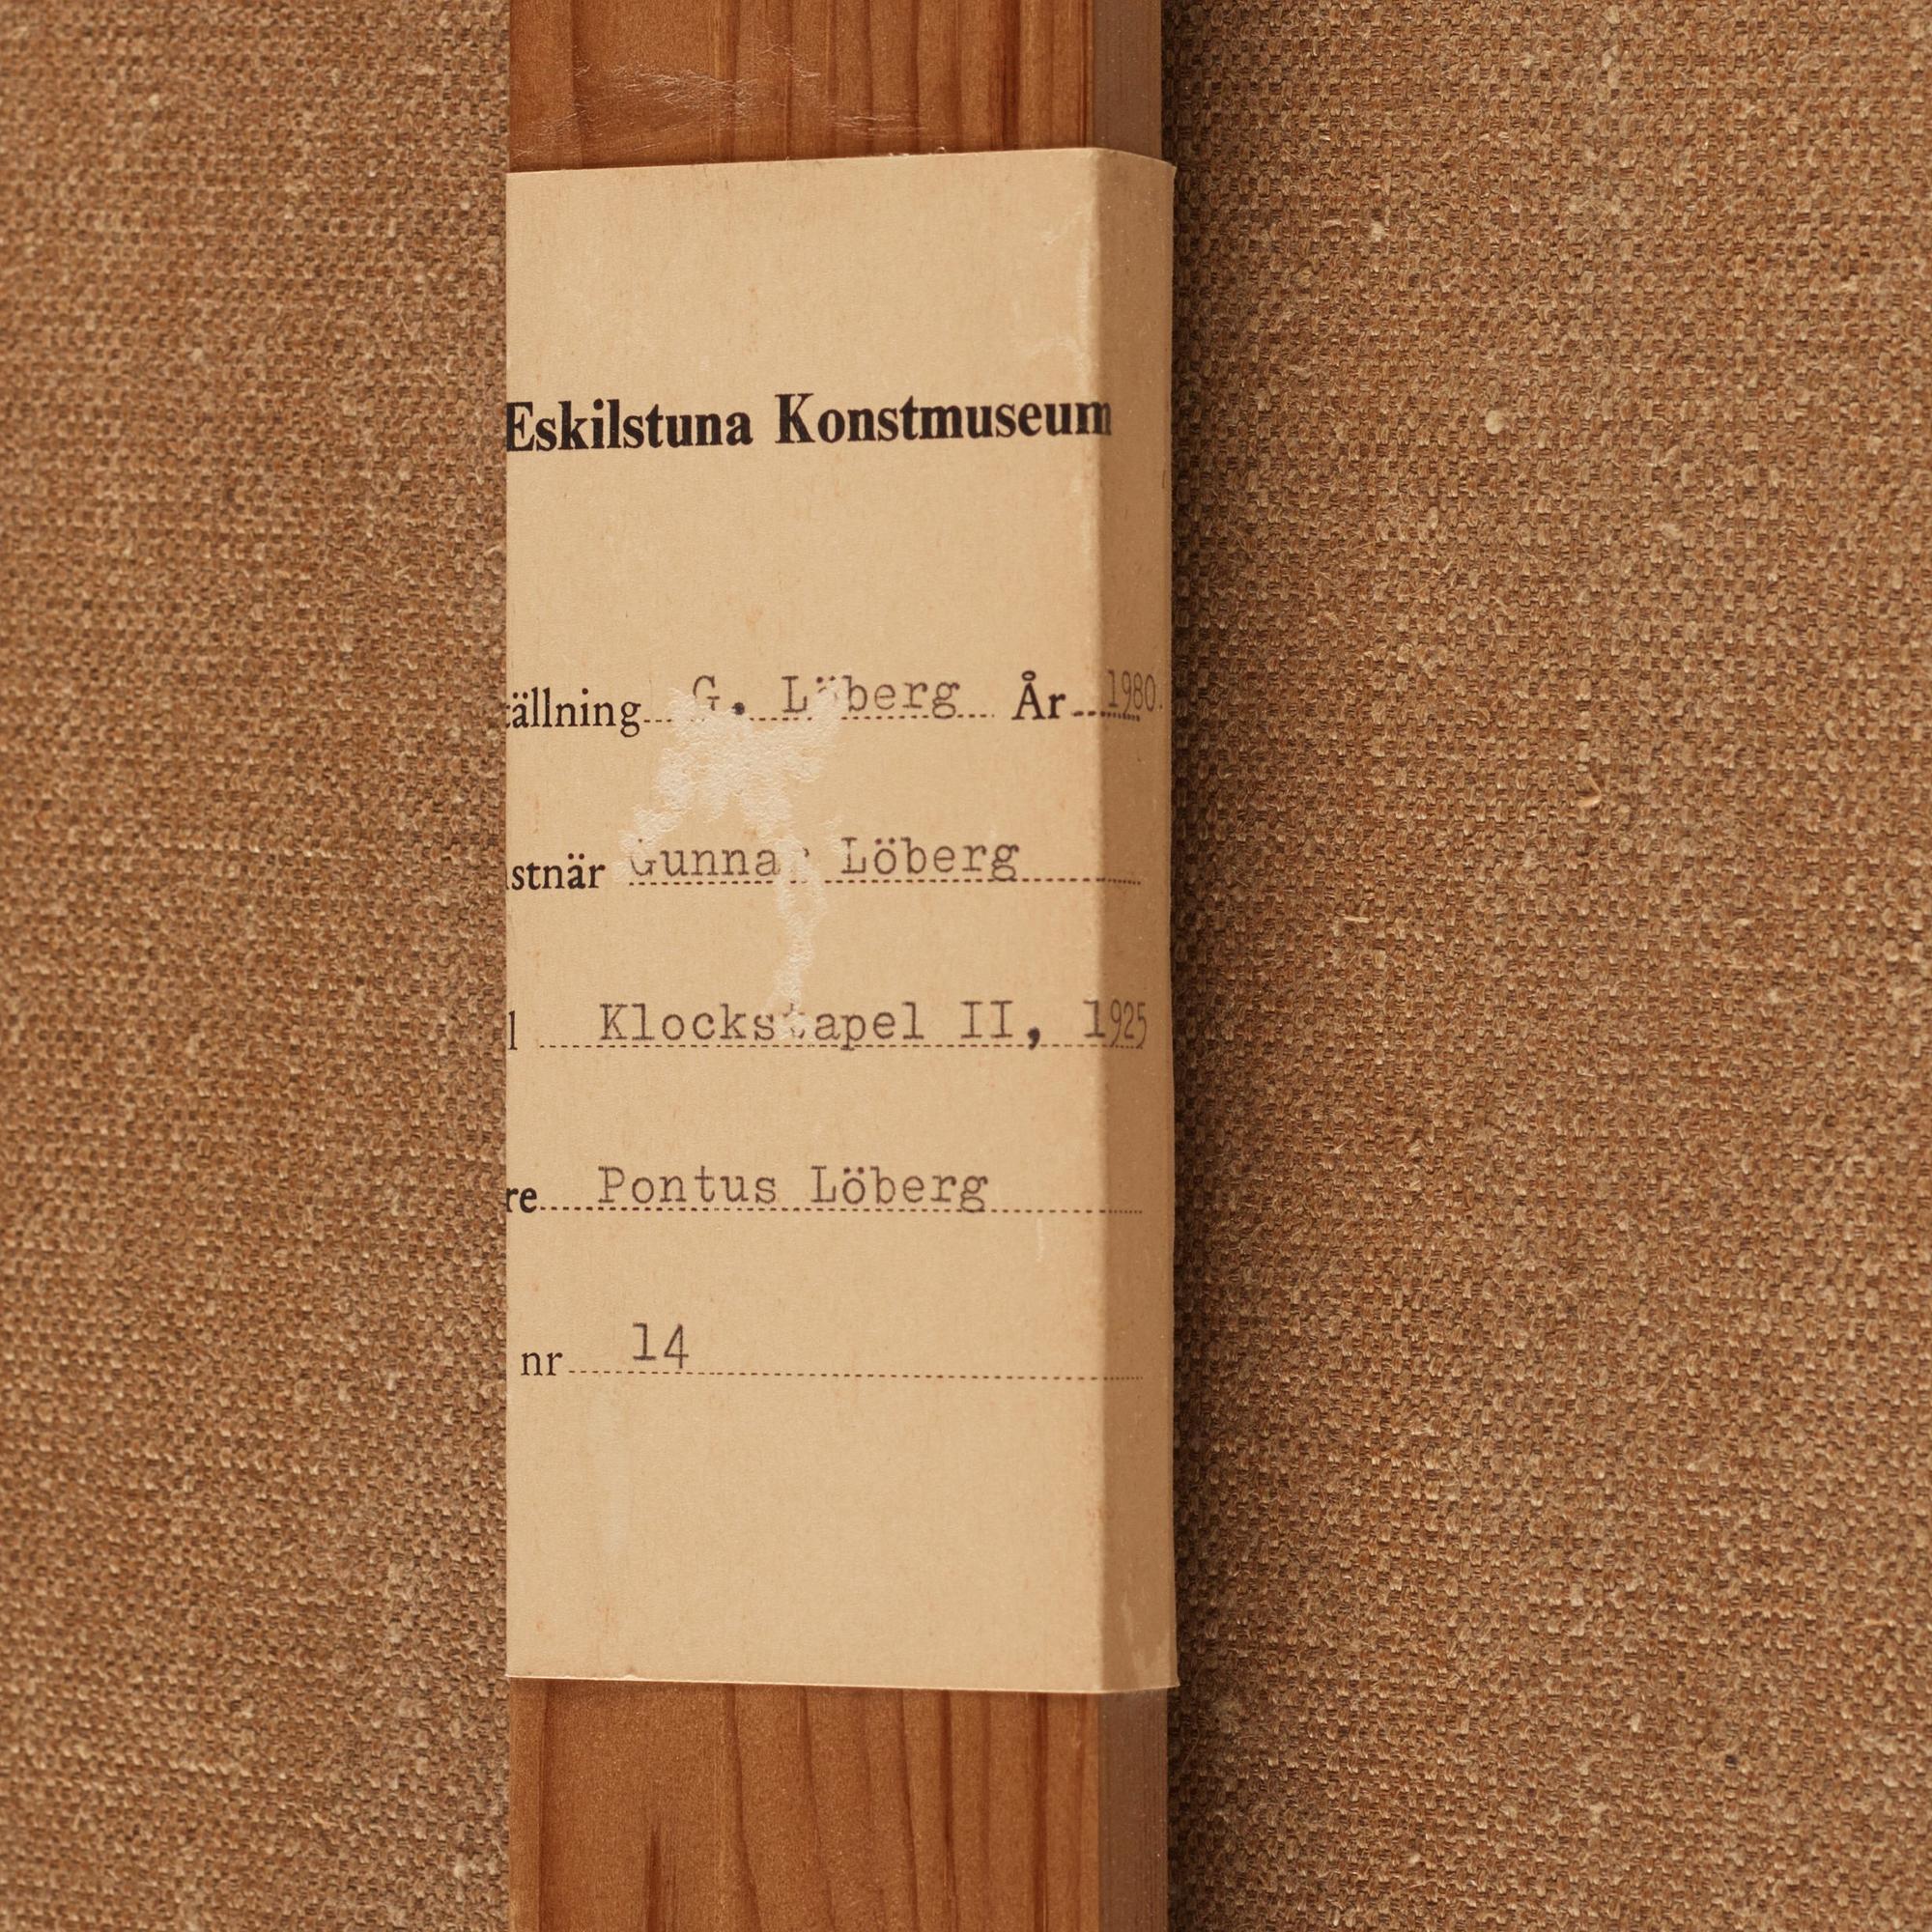 Eskilstuna Konstmuseum
tällning G. Löberg År 1980.
stnär Gunnar Löberg
l Klockstapel II, 1925
re Pontus Löberg
nr 14